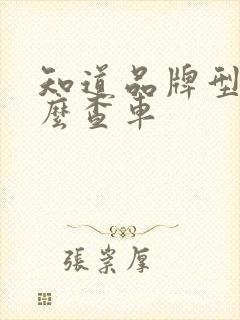 知道品牌型
麼查車
張崇厚